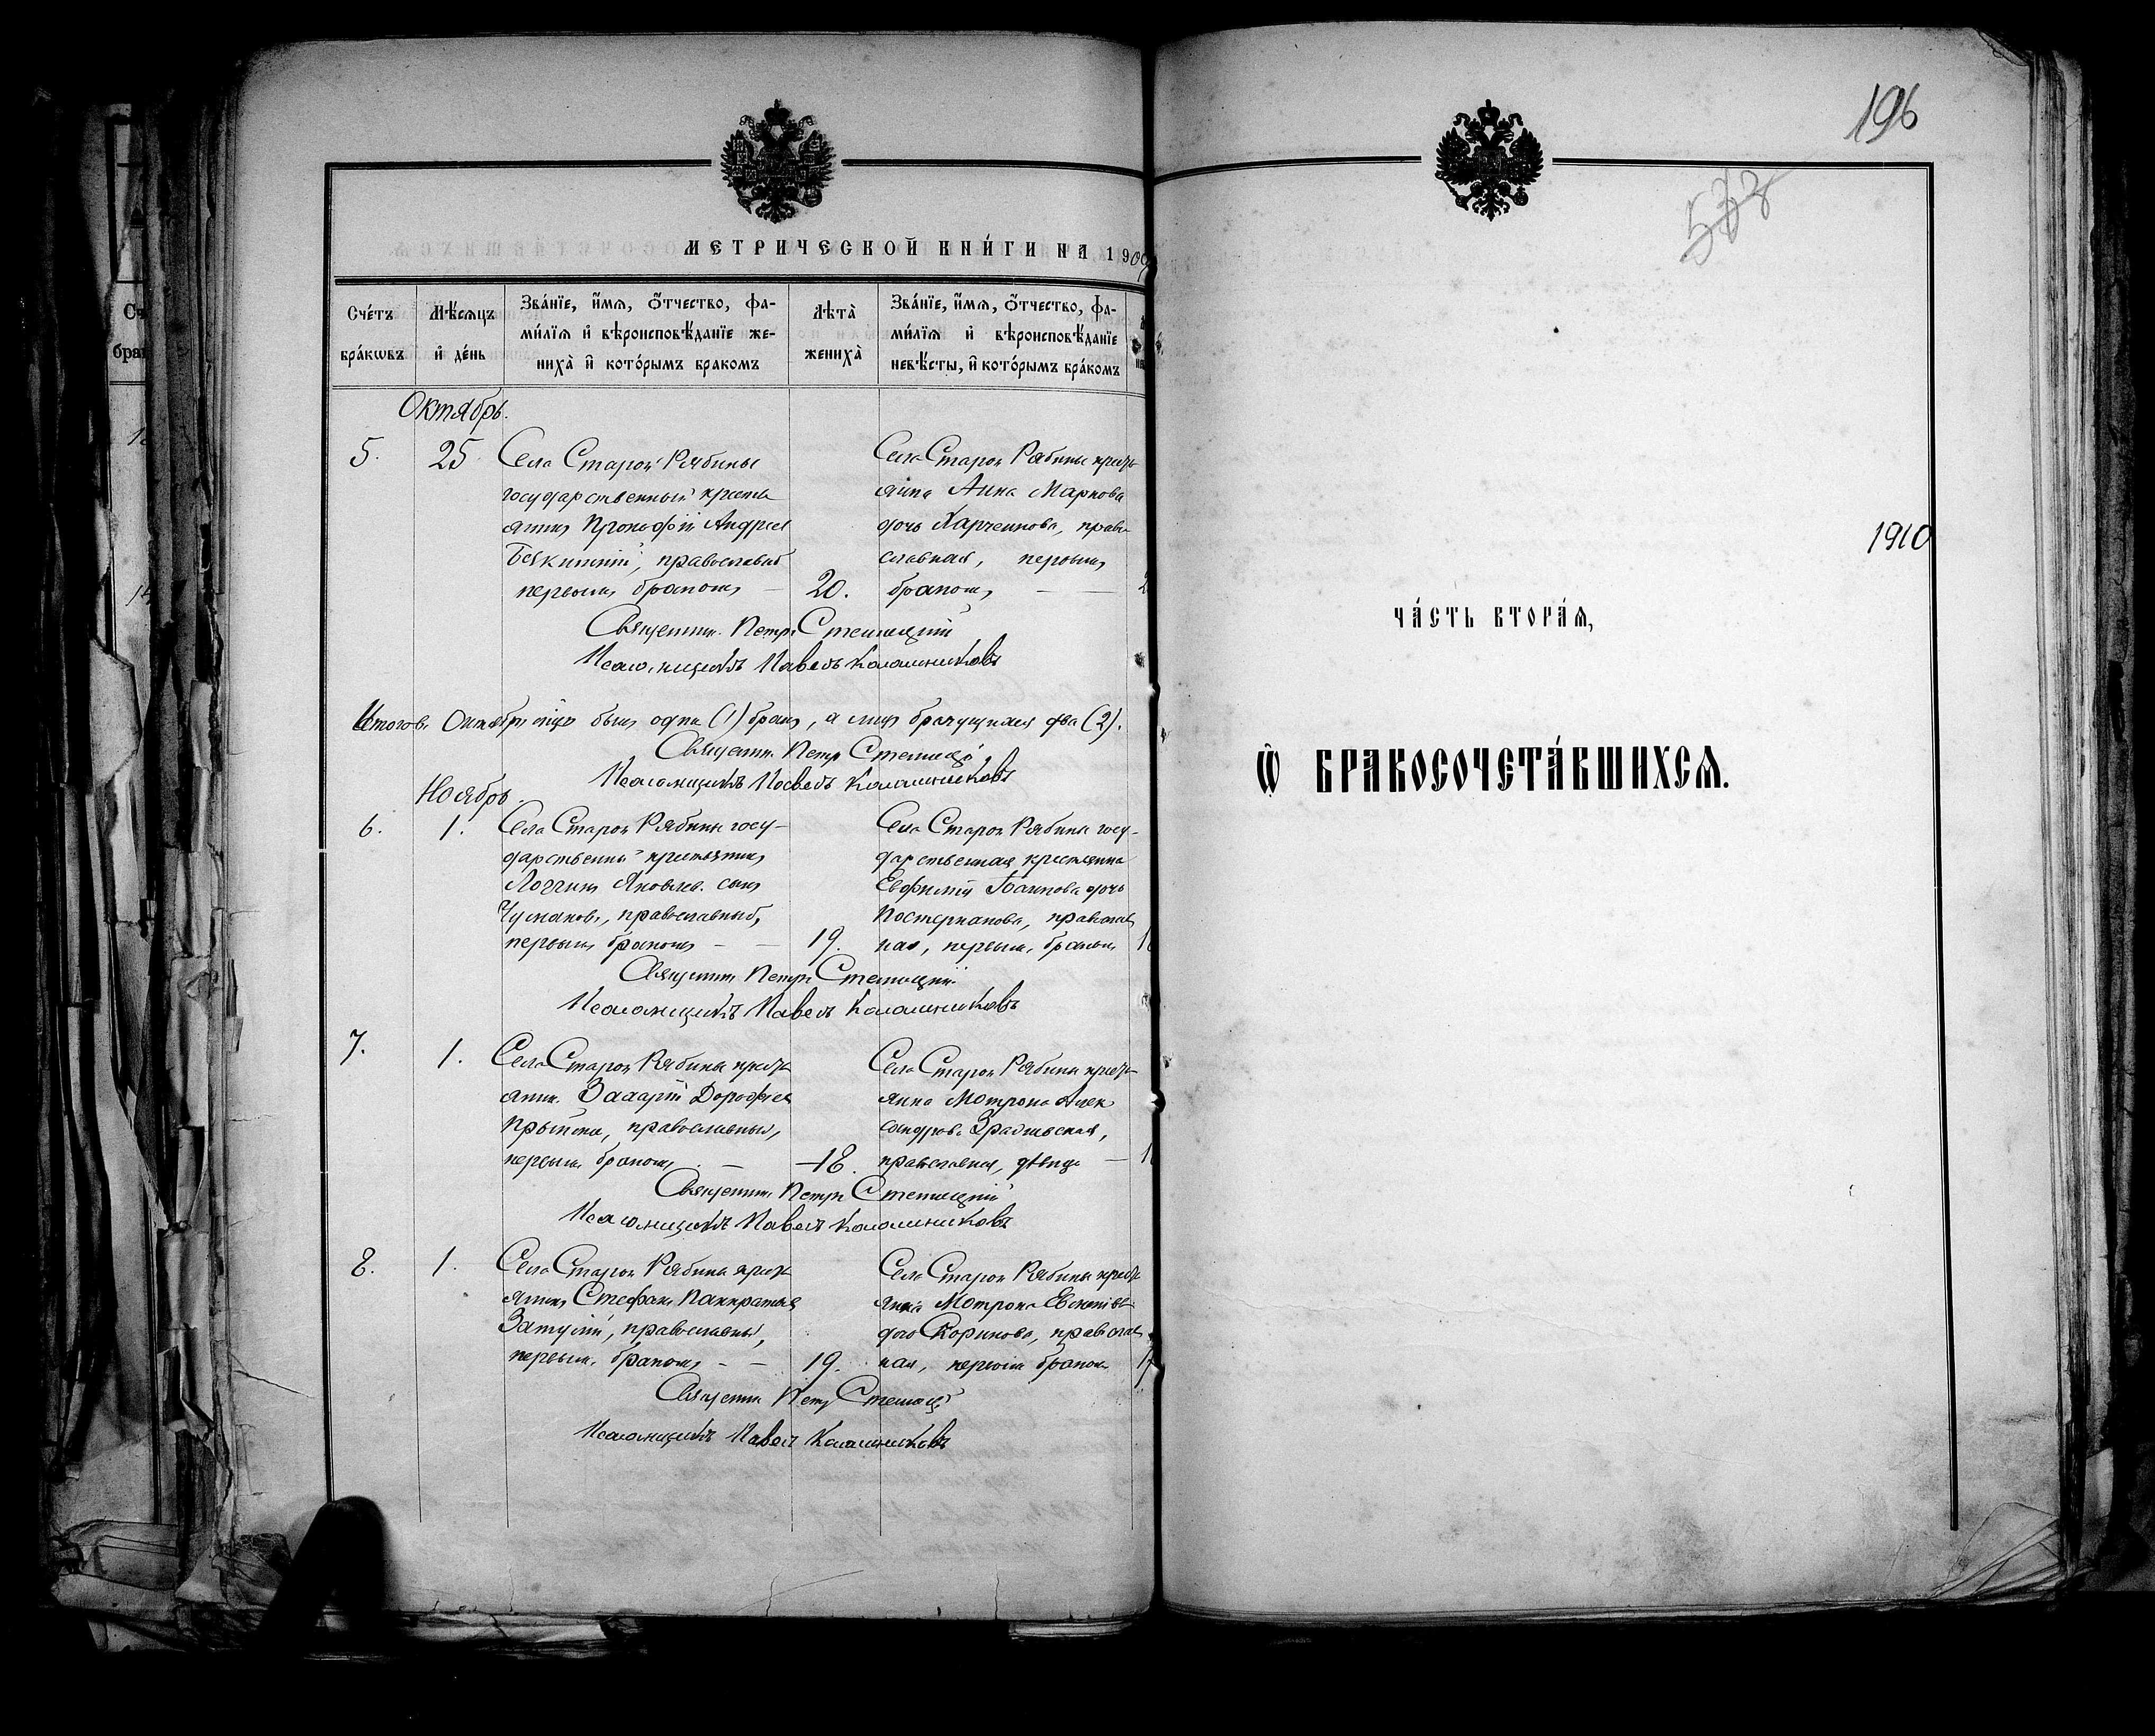 196
533
МЕТРИЧЕСКОЙ КНИГИ НА 1909
Счетъ браковъ
Мѣсяцъ и день
Званіе, имя, отчество, фамилія и вѣроисповѣданіе жениха и которымъ бракомъ
Лѣта жениха
Званіе, имя, отчество, фамилія и вѣроисповѣданіе невѣсты, и которымъ бракомъ
Октябрь.
5. 25
Села Старой Рябины
государственный кресть
янинъ Прокофій Андреев
православный
первымъ бракомъ — 20.
Села Старой Рябины кресть
янка Анна Маркова
дочь Харченкова, право
славная, первымъ
бракомъ — — 2
Священник Петръ Стеллецкій
Псаломщикъ Павелъ Калашниковъ
Итого въ Октябрѣ мцѣ былъ одинъ (1) бракъ, а лицъ брачущихся два (2).
Священник Петръ Стеллецкій
Псаломщикъ Павелъ Калашниковъ
Ноябрь.
6. 1.
Села Старой Рябины госу-
дарственный крестьянинъ
Логгинъ Яковлев. сынъ
Чумаковъ, православный,
первымъ бракомъ — — 19.
Села Старой Рябины госу-
дарственная крестьянка
Евфимія дочь
православ
ная, первымъ бракомъ 1
Священникъ Петръ Стеллецкій
Псаломщикъ Павелъ Калашниковъ
7. 1.
Села Старой Рябины кресть
янин. Захарій Дорофеев
православный,
первымъ бракомъ — 18.
Села Старой Рябины кресть-
янка Мотрона Алек
сандрова
православная, дѣвица — 1
Священникъ Петръ Стеллецкій
Псаломщикъ Павелъ Калашниковъ
8. 1.
Села Старой Рябины кресть
янинъ Стефанъ Панкратьев
православный,
первымъ бракомъ — — 19.
Села Старой Рябины кресть
янка Мотрона
дочь Корикова, православ
ная, первымъ бракомъ 17
Священник Петръ Стеллецкій
Псаломщикъ Павелъ Калашниковъ
1910
ЧАСТЬ ВТОРАЯ,
Ѽ БРАКОСОЧЕТАВШИХСЯ.